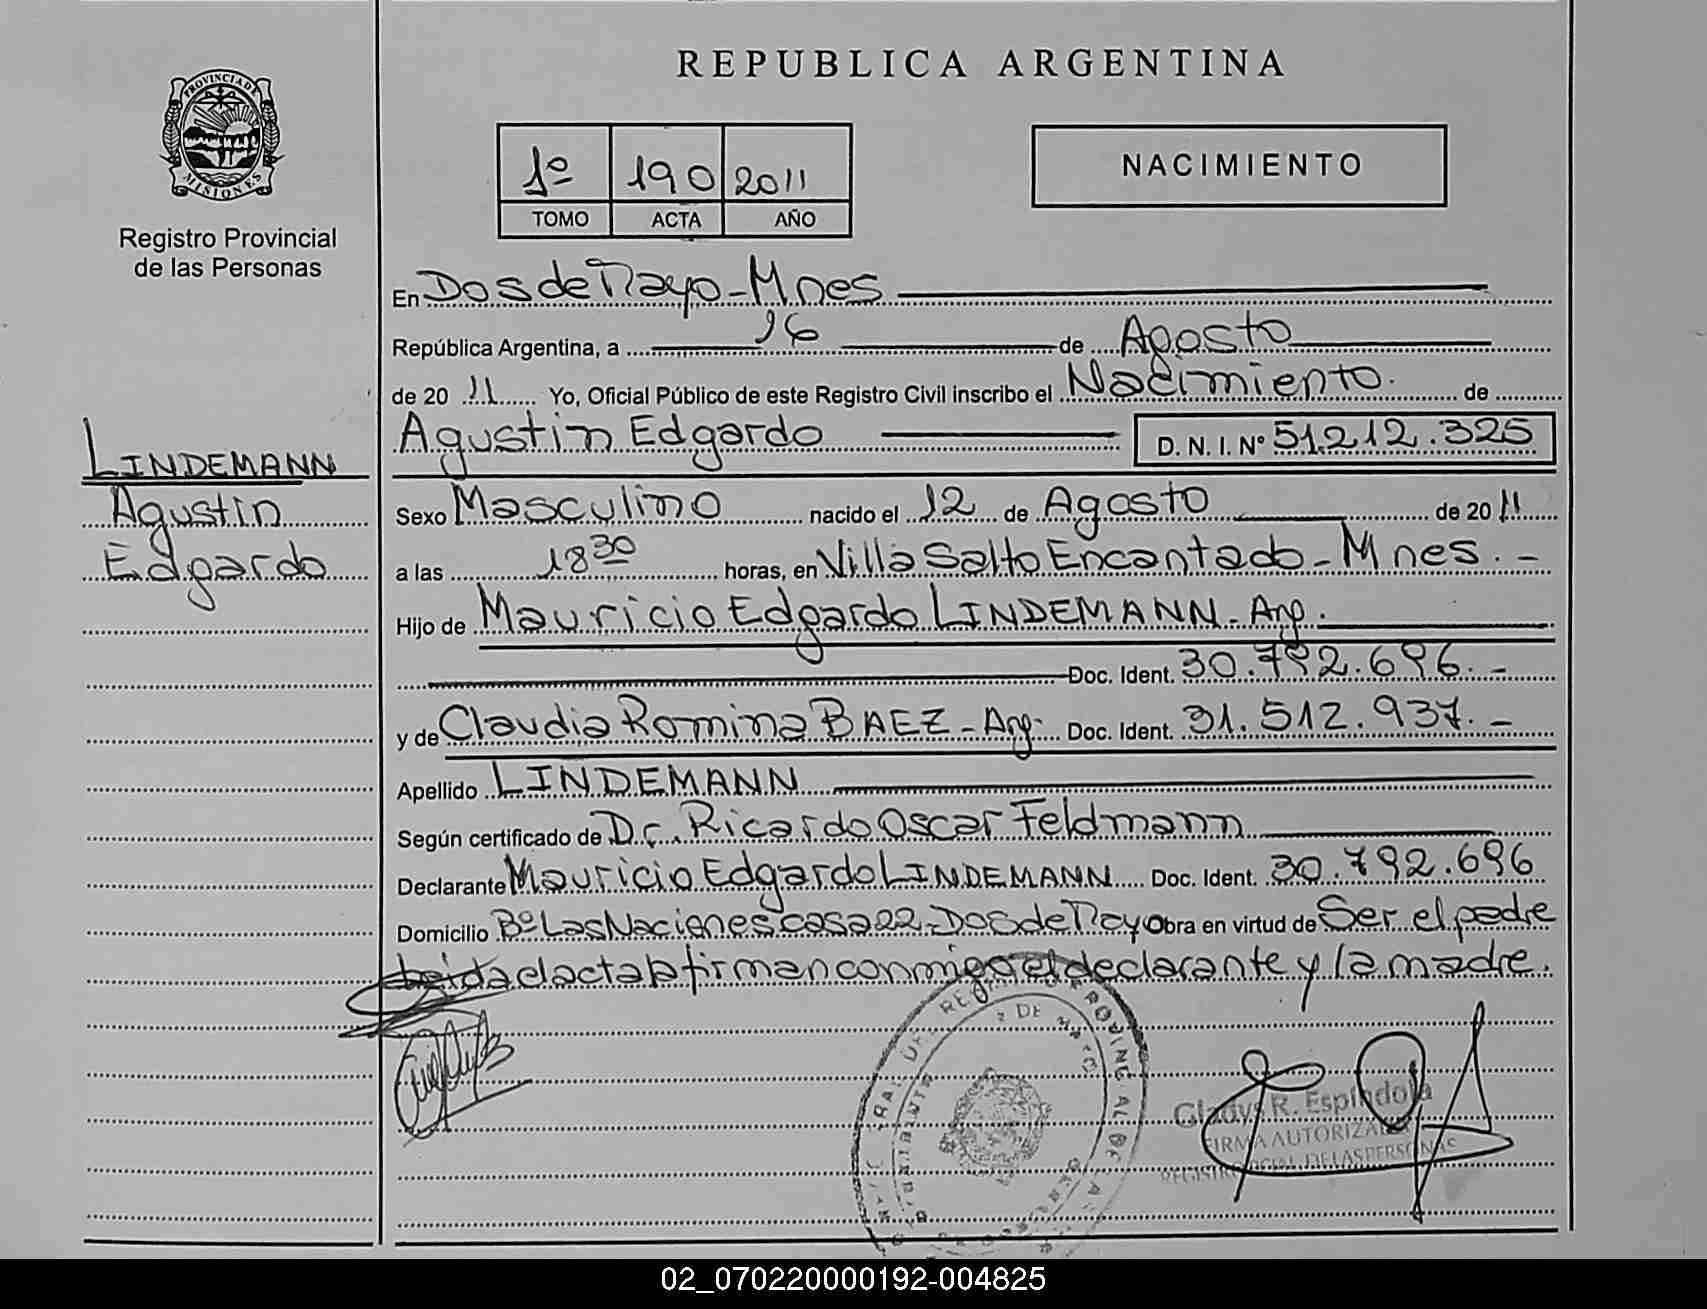 REPUBLICA ARGENTINA
PROVINCIA DE
MISIONES
Registro Provincial
de las Personas
1º 190 2011
TOMO ACTA AÑO
NACIMIENTO
En Dos de Mayo - Mnes
República Argentina, a 16 de Agosto
de 20 11 Yo, Oficial Público de este Registro Civil inscribo el Nacimiento. de
Agustin Edgardo D. N. I. Nº 51.212.325
LINDEMANN
Agustin
Edgardo
Sexo Masculino nacido el 12 de Agosto de 20 11
a las 18 30 horas, en Villa Salto Encantado - Mnes. -
Hijo de Mauricio Edgardo LINDEMANN - Arg.
Doc. Ident. 30.792.696. -
y de Claudia Romina BAEZ - Arg. Doc. Ident. 31.512.937. -
Apellido LINDEMANN
Según certificado de Dr. Ricardo Oscar Feldmann
Declarante Mauricio Edgardo LINDEMANN Doc. Ident. 30.792.696
Domicilio Bº Las Naciones casa 22 - Dos de Mayo Obra en virtud de Ser el padre
leida el acta la firman conmigo el declarante y la madre.
Gladys R. Espindola
FIRMA AUTORIZADA
REGISTRO PCIAL. DE LAS PERSONAS
02_070220000192-004825